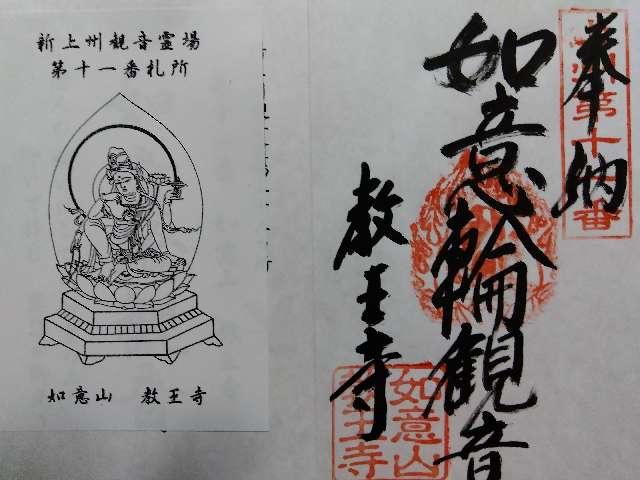 奉納
如意輪観音
教王寺
第十一番
如意山
教王寺
新上州観音霊場
第十一番札所
如意山 教王寺